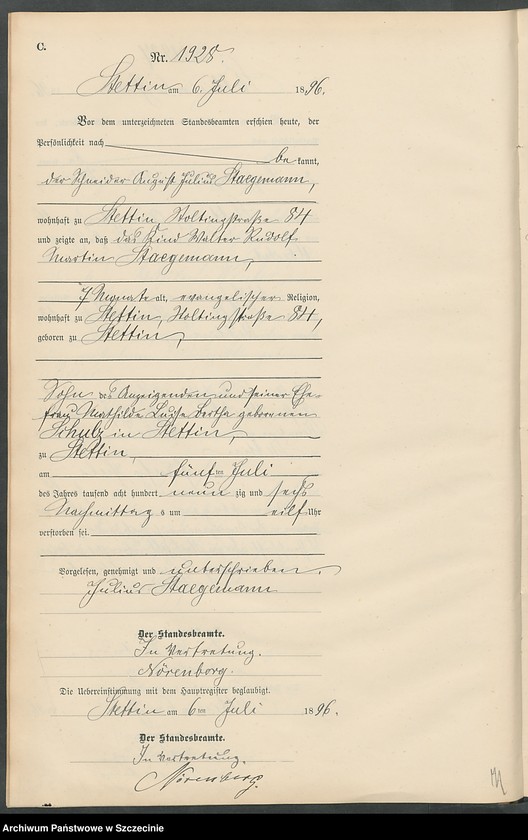 C.
Nr. 1928.
Stettin am 6. Juli 1896.
Vor dem unterzeichneten Standesbeamten erschien heute, der
Persönlichkeit nach
be kannt,
der Schneider August Julius Staegemann,
wohnhaft zu Stettin, Stoltingstraße 84
und zeigte an, daß das Kind Walter Rudolf
Martin Staegemann,
7 Monate alt, evangelischer Religion,
wohnhaft zu Stettin, Stoltingstraße 84,
geboren zu Stettin,
Sohn des Anzeigenden und seiner Ehe-
frau Mathilde Luise Bertha geborenen
Schulz in Stettin,
zu Stettin,
am fünf ten Juli
des Jahres tausend acht hundert neun zig und sechs
Nachmittag s um eilf Uhr
verstorben sei.
Vorgelesen, genehmigt und unterschrieben.
Julius Staegemann
Der Standesbeamte.
In Vertretung.
Nörenberg.
Die Uebereinstimmung mit dem Hauptregister beglaubigt.
Stettin am 6 ten Juli 1896.
Der Standesbeamte.
In Vertretung.
Nörenberg.
Archiwum Państwowe w Szczecinie